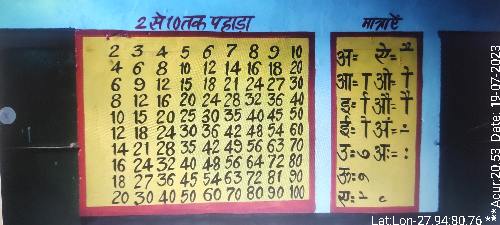 2 से 10 तक पहाड़ा
2 3 4 5 6 7 8 9 10
4 6 8 10 12 14 16 18 20
6 9 12 15 18 21 24 27 30
8 12 16 20 24 28 32 36 40
10 15 20 25 30 35 40 45 50
12 18 24 30 36 42 48 54 60
14 21 28 35 42 49 56 63 70
16 24 32 40 48 56 64 72 80
18 27 36 45 54 63 72 81 90
20 30 40 50 60 70 80 90 100
मात्राऐं
अ= ऐ= ै
आ= ा ओ= ो
इ= ि औ= ौ
ई= ी अं= ं
उ= ु अः= ः
ऊ= ू
Lat:Lon-27.94:80.76 ***Acur:20.53 Date: 19-07-2023